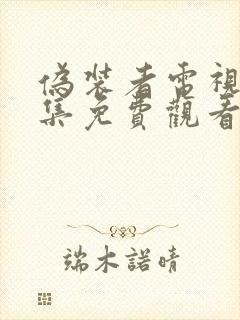 偽裝者電視
集免費觀看
端木諾晴